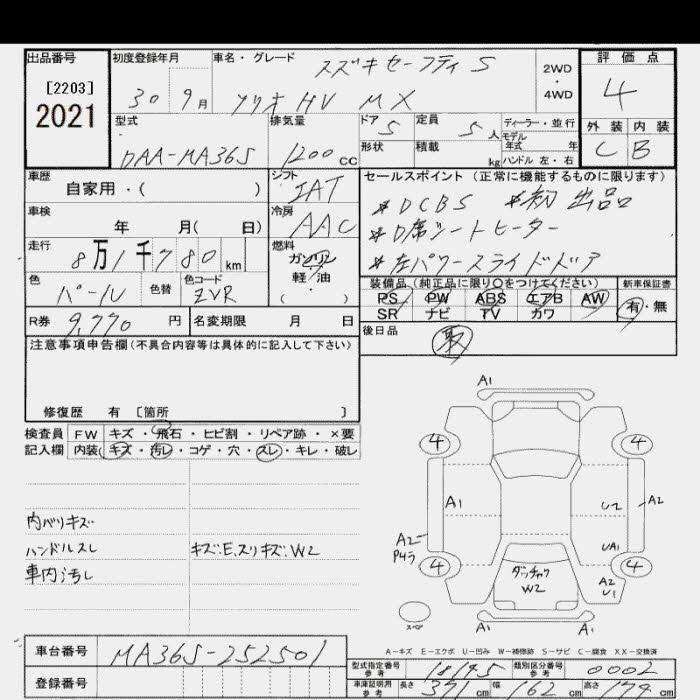 出品番号
[2203]
2021
初度登録年月
30 9月
車名・グレード
スズキセーフティ S
ソリオ HV MX
2WD
・
4WD
評価点
4
外装 内装
C B
型式
DAA-MA36S
排気量
1200cc
ドア 5
形状
定員 5人
積載 kg
ディーラー・並行
モデル
年式 年
ハンドル 左・右
車歴
自家用・( )
シフト
IAT
車検
年 月( 日)
冷房
AAC
走行
8万1千780km
燃料
ガソリン
軽・油
( )
色
パール
色替
色コード
ZVR
R券 9,770円
名変期限 月 日
セールスポイント(正常に機能するものに限ります)
*DCBS *初出品
*D席シートヒーター
*左パワースライドドア
装備品(純正品に限り○をつけてください)
PS PW ABS エアB AW
SR ナビ TV カワ
新車保証書
有・無
後日品
取
注意事項申告欄(不具合内容等は具体的に記入して下さい)
修復歴 有 [箇所 ]
検査員 FW キズ・飛石・ヒビ割・リペア跡・×要
記入欄 内装 キズ・汚レ・コゲ・穴・スレ・キレ・破レ
内バリキズ
ハンドルスレ キズ.E.スリキズ.W2
車内汚レ
A1
4 4
A1 U2 A2
A2
Pキラ
UA1
4 4
ダッチャク
W2
A2
U1
スペア
A1
A-キズ E-エクボ U-凹み W-補修跡 S-サビ C-腐食 XX-交換済
車台番号 MA36S-252501
登録番号
型式指定番号
参考
18195
類別区分番号
参考
0002
車庫証明用
参考
長さ 371cm 幅 162cm 高さ cm